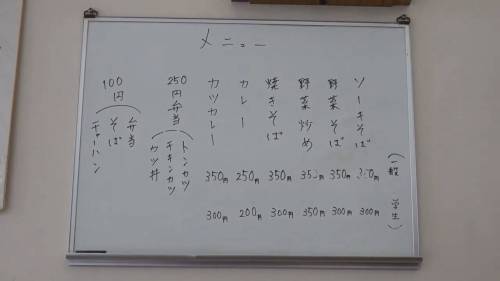 メニュー
(一般 学生)
ソーキそば 350円 300円
野菜そば 350円 300円
野菜炒め 350円 350円
焼きそば 350円 300円
カレー 250円 200円
カツカレー 350円 300円
250円弁当
トンカツ
チキンカツ
100円
弁当
そば
チャーハン